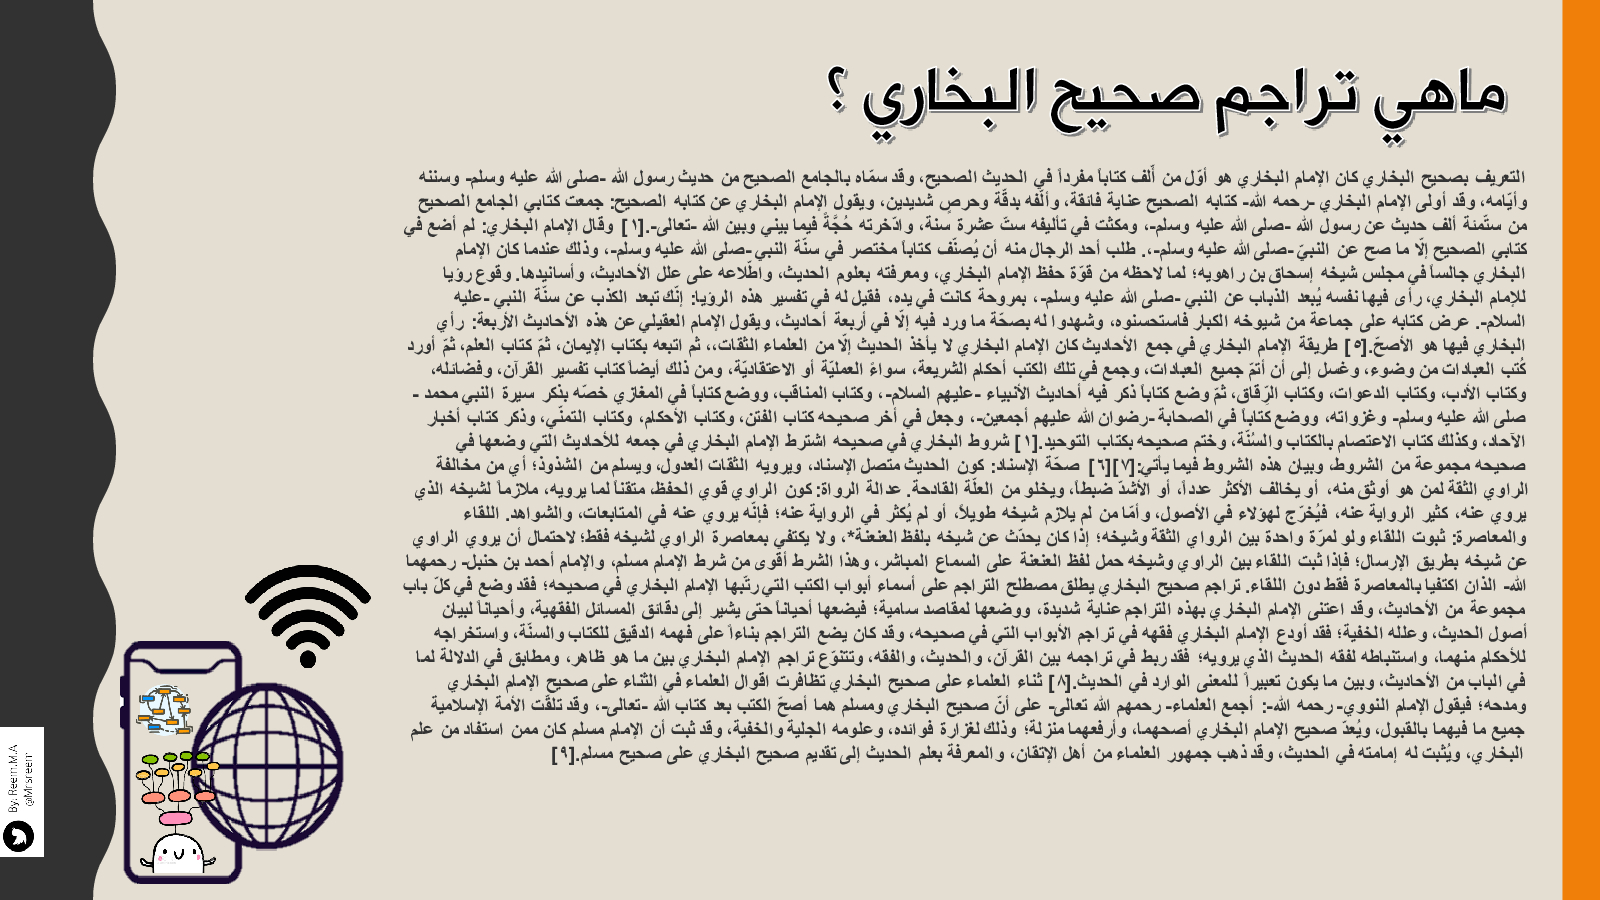 ماهي تراجم صحيح البخاري ؟
التعريف بصحيح البخاري كان الإمام البخاري هو أوّل من ألّف كتاباً مفرداً في الحديث الصحيح، وقد سمّاه بالجامع الصحيح من حديث رسول الله -صلى الله عليه وسلم- وسننه
وأيّامه، وقد أولى الإمام البخاري -رحمه الله- كتابه الصحيح عناية فائقة، وألّفه بدقّة وحرصٍ شديدين، ويقول الإمام البخاري عن كتابه الصحيح: جمعت كتابي الجامع الصحيح
من ستّمئة ألف حديث عن رسول الله -صلى الله عليه وسلم-، ومكثت في تأليفه ستّ عشرة سنة، وادّخرته حُجَّةً فيما بيني وبين الله -تعالى-.[١] وقال الإمام البخاري: لم أضع في
كتابي الصحيح إلّا ما صح عن النبيّ -صلى الله عليه وسلم-،. طلب أحد الرجال منه أن يُصنّف كتاباً مختصر في سنّة النبي -صلى الله عليه وسلم-، وذلك عندما كان الإمام
البخاري جالساً في مجلس شيخه إسحاق بن راهويه؛ لما لاحظه من قوّة حفظ الإمام البخاري، ومعرفته بعلوم الحديث، واطّلاعه على علل الأحاديث، وأسانيدها. وقوع رؤيا
للإمام البخاري، رأى فيها نفسه يُبعد الذباب عن النبي -صلى الله عليه وسلم-، بمروحة كانت في يده، فقيل له في تفسير هذه الرؤيا: إنّك تبعد الكذب عن سنّة النبي -عليه
السلام-. عرض كتابه على جماعة من شيوخه الكبار فاستحسنوه، وشهدوا له بصحّة ما ورد فيه إلّا في أربعة أحاديث، ويقول الإمام العقيلي عن هذه الأحاديث الأربعة: رأي
البخاري فيها هو الأصحّ.[٥] طريقة الإمام البخاري في جمع الأحاديث كان الإمام البخاري لا يأخذ الحديث إلّا من العلماء الثقات،، ثم اتبعه بكتاب الإيمان، ثمّ كتاب العلم، ثمّ أورد
كُتب العبادات من وضوء، وغسل إلى أن أتمّ جميع العبادات، وجمع في تلك الكتب أحكام الشريعة، سواءً العمليّة أو الاعتقاديّة، ومن ذلك أيضاً كتاب تفسير القرآن، وفضائله،
وكتاب الأدب، وكتاب الدعوات، وكتاب الرّقاق، ثمّ وضع كتاباً ذكر فيه أحاديث الأنبياء -عليهم السلام-، وكتاب المناقب، ووضع كتاباً في المغازي خصّه بذكر سيرة النبي محمد -
صلى الله عليه وسلم- وغزواته، ووضع كتاباً في الصحابة -رضوان الله عليهم أجمعين-، وجعل في أخر صحيحه كتاب الفتن، وكتاب الأحكام، وكتاب التمنّي، وذكر كتاب أخبار
الآحاد، وكذلك كتاب الاعتصام بالكتاب والسُنّة، وختم صحيحه بكتاب التوحيد.[١] شروط البخاري في صحيحه اشترط الإمام البخاري في جمعه للأحاديث التي وضعها في
صحيحه مجموعة من الشروط، وبيان هذه الشروط فيما يأتي:[٧][٦] صحّة الإسناد: كون الحديث متصل الإسناد، ويرويه الثقات العدول، ويسلم من الشذوذ؛ أي من مخالفة
الراوي الثقة لمن هو أوثق منه، أو يخالف الأكثر عدداً، أو الأشدّ ضبطاً، ويخلو من العلّة القادحة. عدالة الرواة: كون الراوي قوي الحفظ، متقناً لما يرويه، ملازماً لشيخه الذي
يروي عنه، كثير الرواية عنه، فيُخرّج لهؤلاء في الأصول، وأمّا من لم يلازم شيخه طويلاً، أو لم يُكثر في الرواية عنه؛ فإنّه يروي عنه في المتابعات، والشواهد. اللقاء
والمعاصرة: ثبوت اللقاء ولو لمرّة واحدة بين الرواي الثقة وشيخه؛ إذا كان يحدّث عن شيخه بلفظ العنعنة*، ولا يكتفي بمعاصرة الراوي لشيخه فقط؛ لاحتمال أن يروي الراوي
عن شيخه بطريق الإرسال؛ فإذا ثبت اللقاء بين الراوي وشيخه حمل لفظ العنعنة على السماع المباشر، وهذا الشرط أقوى من شرط الإمام مسلم، والإمام أحمد بن حنبل- رحمهما
الله- الذان اكتفيا بالمعاصرة فقط دون اللقاء. تراجم صحيح البخاري يطلق مصطلح التراجم على أسماء أبواب الكتب التي رتّبها الإمام البخاري في صحيحه؛ فقد وضع في كلّ باب
مجموعة من الأحاديث، وقد اعتنى الإمام البخاري بهذه التراجم عناية شديدة، ووضعها لمقاصد سامية؛ فيضعها أحياناً حتى يشير إلى دقائق المسائل الفقهية، وأحياناً لبيان
أصول الحديث، وعلله الخفية؛ فقد أودع الإمام البخاري فقهه في تراجم الأبواب التي في صحيحه، وقد كان يضع التراجم بناءاً على فهمه الدقيق للكتاب والسنّة، واستخراجه
للأحكام منهما، واستنباطه لفقه الحديث الذي يرويه؛ فقد ربط في تراجمه بين القرآن، والحديث، والفقه، وتتنوّع تراجم الإمام البخاري بين ما هو ظاهر، ومطابق في الدلالة لما
في الباب من الأحاديث، وبين ما يكون تعبيراً للمعنى الوارد في الحديث.[٨] ثناء العلماء على صحيح البخاري تظافرت اقوال العلماء في الثناء على صحيح الإمام البخاري
ومدحه؛ فيقول الإمام النووي- رحمه الله-: أجمع العلماء- رحمهم الله تعالى- على أنّ صحيح البخاري ومسلم هما أصحّ الكتب بعد كتاب الله -تعالى-، وقد تلقّت الأمة الإسلامية
جميع ما فيهما بالقبول، ويُعدّ صحيح الإمام البخاري أصحهما، وأرفعهما منزلة؛ وذلك لغزارة فوائده، وعلومه الجلية والخفية، وقد ثبت أن الإمام مسلم كان ممن استفاد من علم
البخاري، ويُثبت له إمامته في الحديث، وقد ذهب جمهور العلماء من أهل الإتقان، والمعرفة بعلم الحديث إلى تقديم صحيح البخاري على صحيح مسلم.[٩]
By: Reem.M.A
@Mrsreem